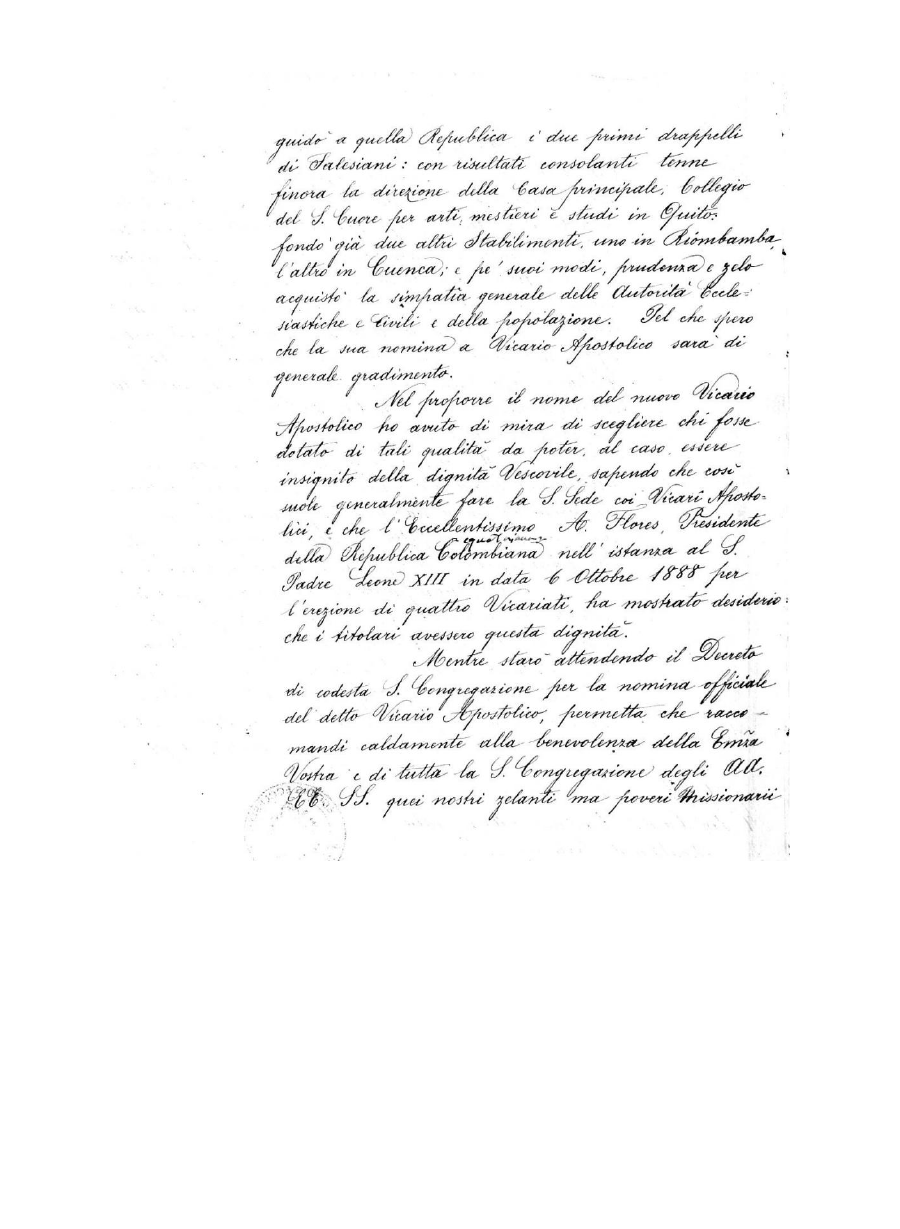 guidò a quella Repubblica i due primi drappelli
di Salesiani: con risultati consolanti tenne
finora la direzione della Casa principale, Collegio
del S. Cuore per arti, mestieri e studi in Quito:
fondò già due altri Stabilimenti, uno in Riombamba,
l'altro in Cuenca; e pe' suoi modi, prudenza e zelo
acquistò la simpatia generale delle Autorità Eccle=
siastiche e Civili e della popolazione. Pel che spero
che la sua nomina a Vicario Apostolico sarà di
generale gradimento.
Nel proporre il nome del nuovo Vicario
Apostolico ho avuto di mira di scegliere chi fosse
dotato di tali qualità da poter, al caso, essere
insignito della dignità Vescovile, sapendo che così
suole generalmente fare la S. Sede coi Vicarî Aposto-
lici, e che l'Eccellentissimo A. Flores, Presidente
della Repubblica Colombiana nell'istanza al S.
Padre Leone XIII in data 6 Ottobre 1888 per
l'erezione di quattro Vicariati, ha mostrato desiderio
che i titolari avessero questa dignità.
Mentre starò attendendo il Decreto
di codesta S. Congregazione per la nomina officiale
del detto Vicario Apostolico, permetta che racco-
mandi caldamente alla benevolenza della Emza
Vostra e di tutta la S. Congregazione degli AA.
EE. SS. quei nostri zelanti ma poveri Missionarii